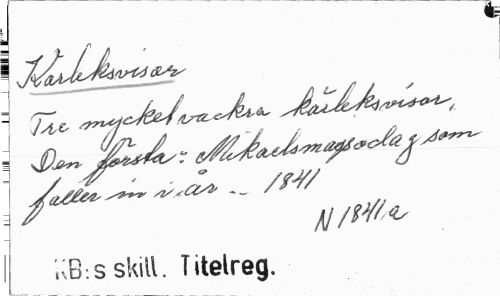 Kärleksvisor
Tre mycket vackra kärleksvisor,
Den första: Mikaelsmässodag som
faller in i år -- 1841
N 1841 a
KB:s skill. Titelreg.